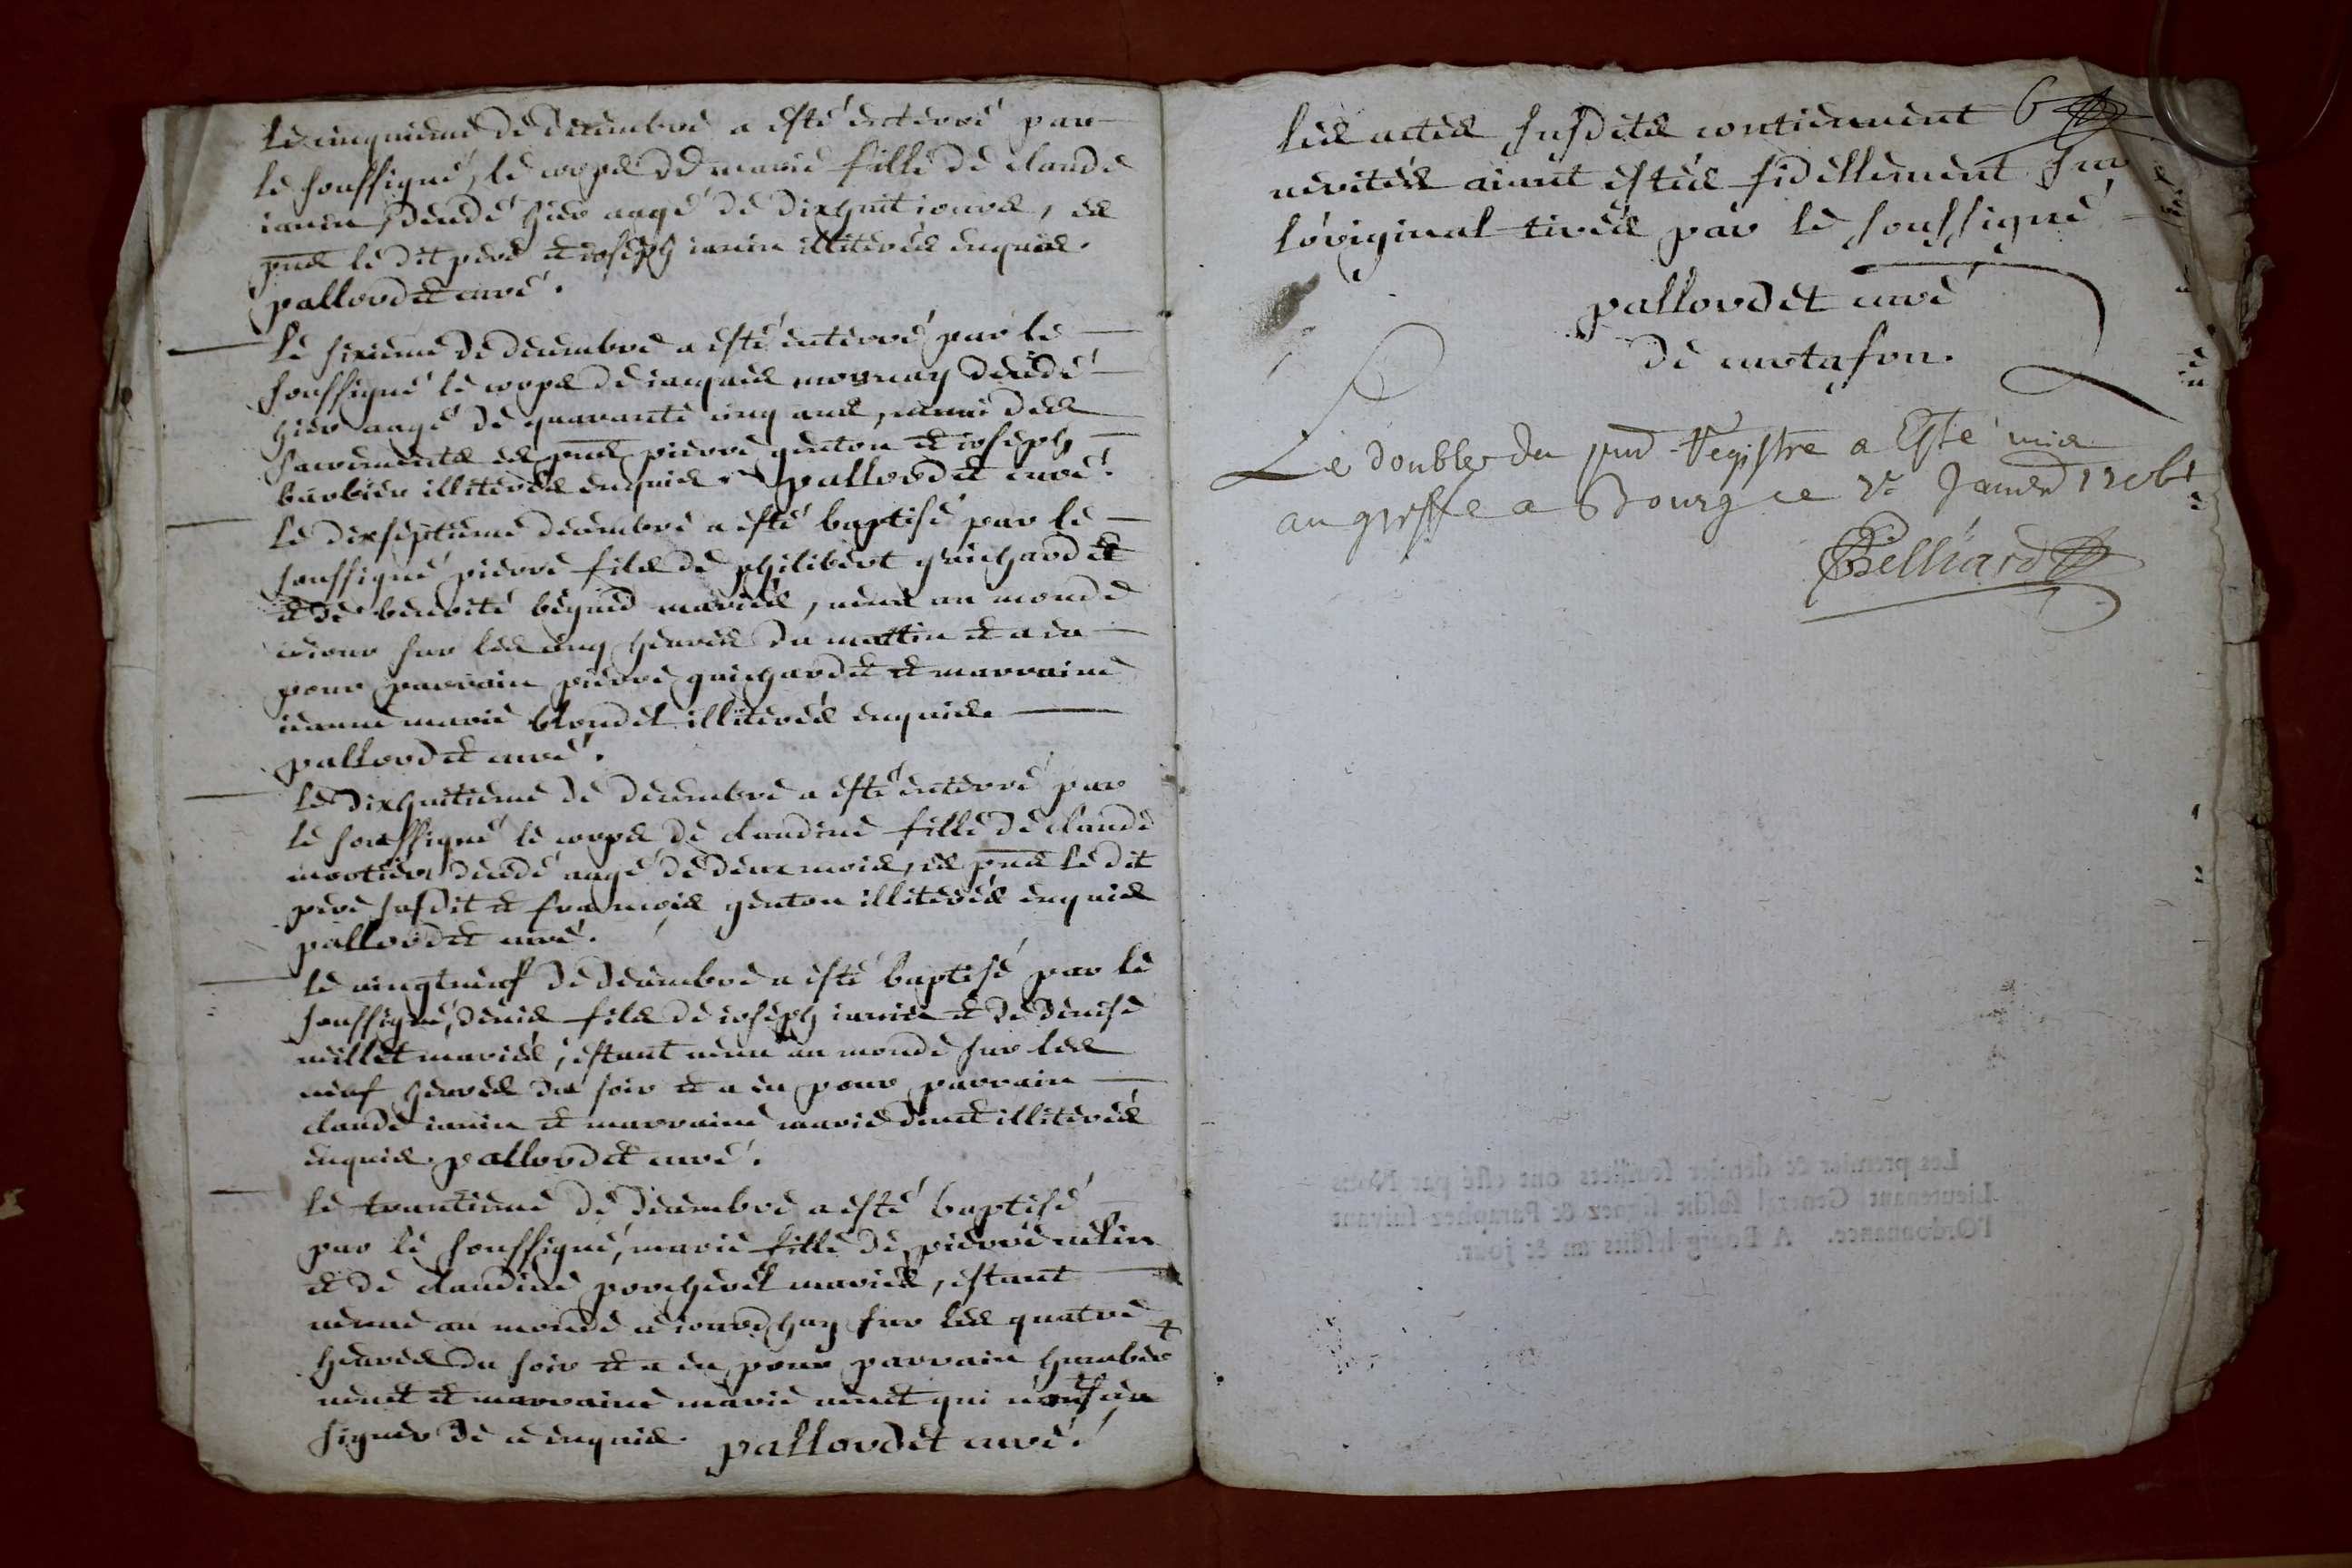 le cinquieme de decembre a esté enterré par
le soussigné, le corps de marie fille de claude
ianin, decedé hier aagé de dixhuit iours, es
pnts le dit pere et ioseph ianin illiterés enquis.
pallordet curé.
le sixieme de decembre a esté enterré par le
soussigné le corps de iacques mornay decedé
hier aagé de quarante cinq ans, muni des
sacrements es pnts pierre genton et ioseph
barbier illiterés enquis. pallordet curé.
le dixseptieme decembre a esté baptisé par le
soussigné pierre fils de philibert guichardet
et de benoite beguet mariés, venu au monde
ce iour sur les cinq heures du mattin et a eu
pour parrain pierre guichardet et marraine
ieanne marie blondel illiterés enquis.
pallordet curé.
le dixhuitieme de decembre a esté enterré par
le soussigné le corps de claudine fille de claude
mortier decedé aagé de deux mois, es pnts le dit
pere susdit et francois genton illiterés enquis
pallordet curé.
le vingtneuf de decembre a esté baptisé par le
soussigné, denis fils de ioseph ianin et de denise
millet mariés, estant venu au monde sur les
neuf heures du soir et a eu pour parrain
claude ianin et marraine marie illiterés
enquis. pallordet curé.
le trantieme de decembre a esté baptisé
par le soussigné, marie fille de pierre velin
et de claudine porcherel mariés, estant
venue au monde ceiourdhuy sur les quatre
heures du soir et a eu pour parrain humber
venet et marraine marie venet qui n'ont sceu
signer de ce enquis. pallordet curé.
6
les actes susdits contiennent
verités aiant estés fidellement sur
l'original tirés par le soussigné
pallordet curé
de curtafon.
Le double du pnt Registre a Esté mis
au greffe a Bourg ce Janvier
Belliard
Les premier & dernier feuillets ont esté par Nous
Lieutenant General susdit signez & Paraphez suivant
l'Ordonnance. A Bourg lesdits an & jour.